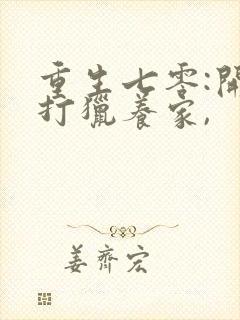 重生七零:開
打獵養家,
姜齊宏